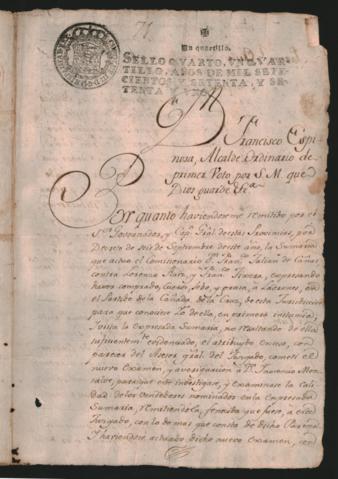 71
Un quartillo.
SELLO QUARTO, UN QUAR-
TILLO, AÑOS DE MIL SETE-
CIENTOS Y SETENTA, Y SE-
TENTA Y UNO.
D. Francisco Espi
nosa, Alcalde Ordinario de
primer Voto por S. M. que
Dios guarde &a.
Por quanto haviendome remitido por el
Sor. Governador, y Capn. Gral. de estas Provincias, por
Decreto de seis de Septiembre de este año, la Sumaria
que actuó el Comisionario Dn. Julian de Cañas
contra Lorenzo y Juan Rivera, expresando
haver comprado, Cueros, Sebo, y grasa, a Ladrones, en
el Partido de la Cañada de la Cruz, de esta Jurisdiccion
para que conociese de ella, en primera instancia,
Vista la expresada Sumaria, no resultando de ella
suficientemte. evidenciado, el atribuido exceso, con
parecer del Asesor gral. del Juzgado, cometí el
nuevo Examen, y averiguacion a Dn.
para que este investigase, y examinase la cali
dad de los Vendedores nominados en la expresada
Sumaria, remitiendola, fenecida que fuese, a este
Juzgado, con lo demas que consta de dicho
Y haviendose actuado dicho nuevo Examen, con